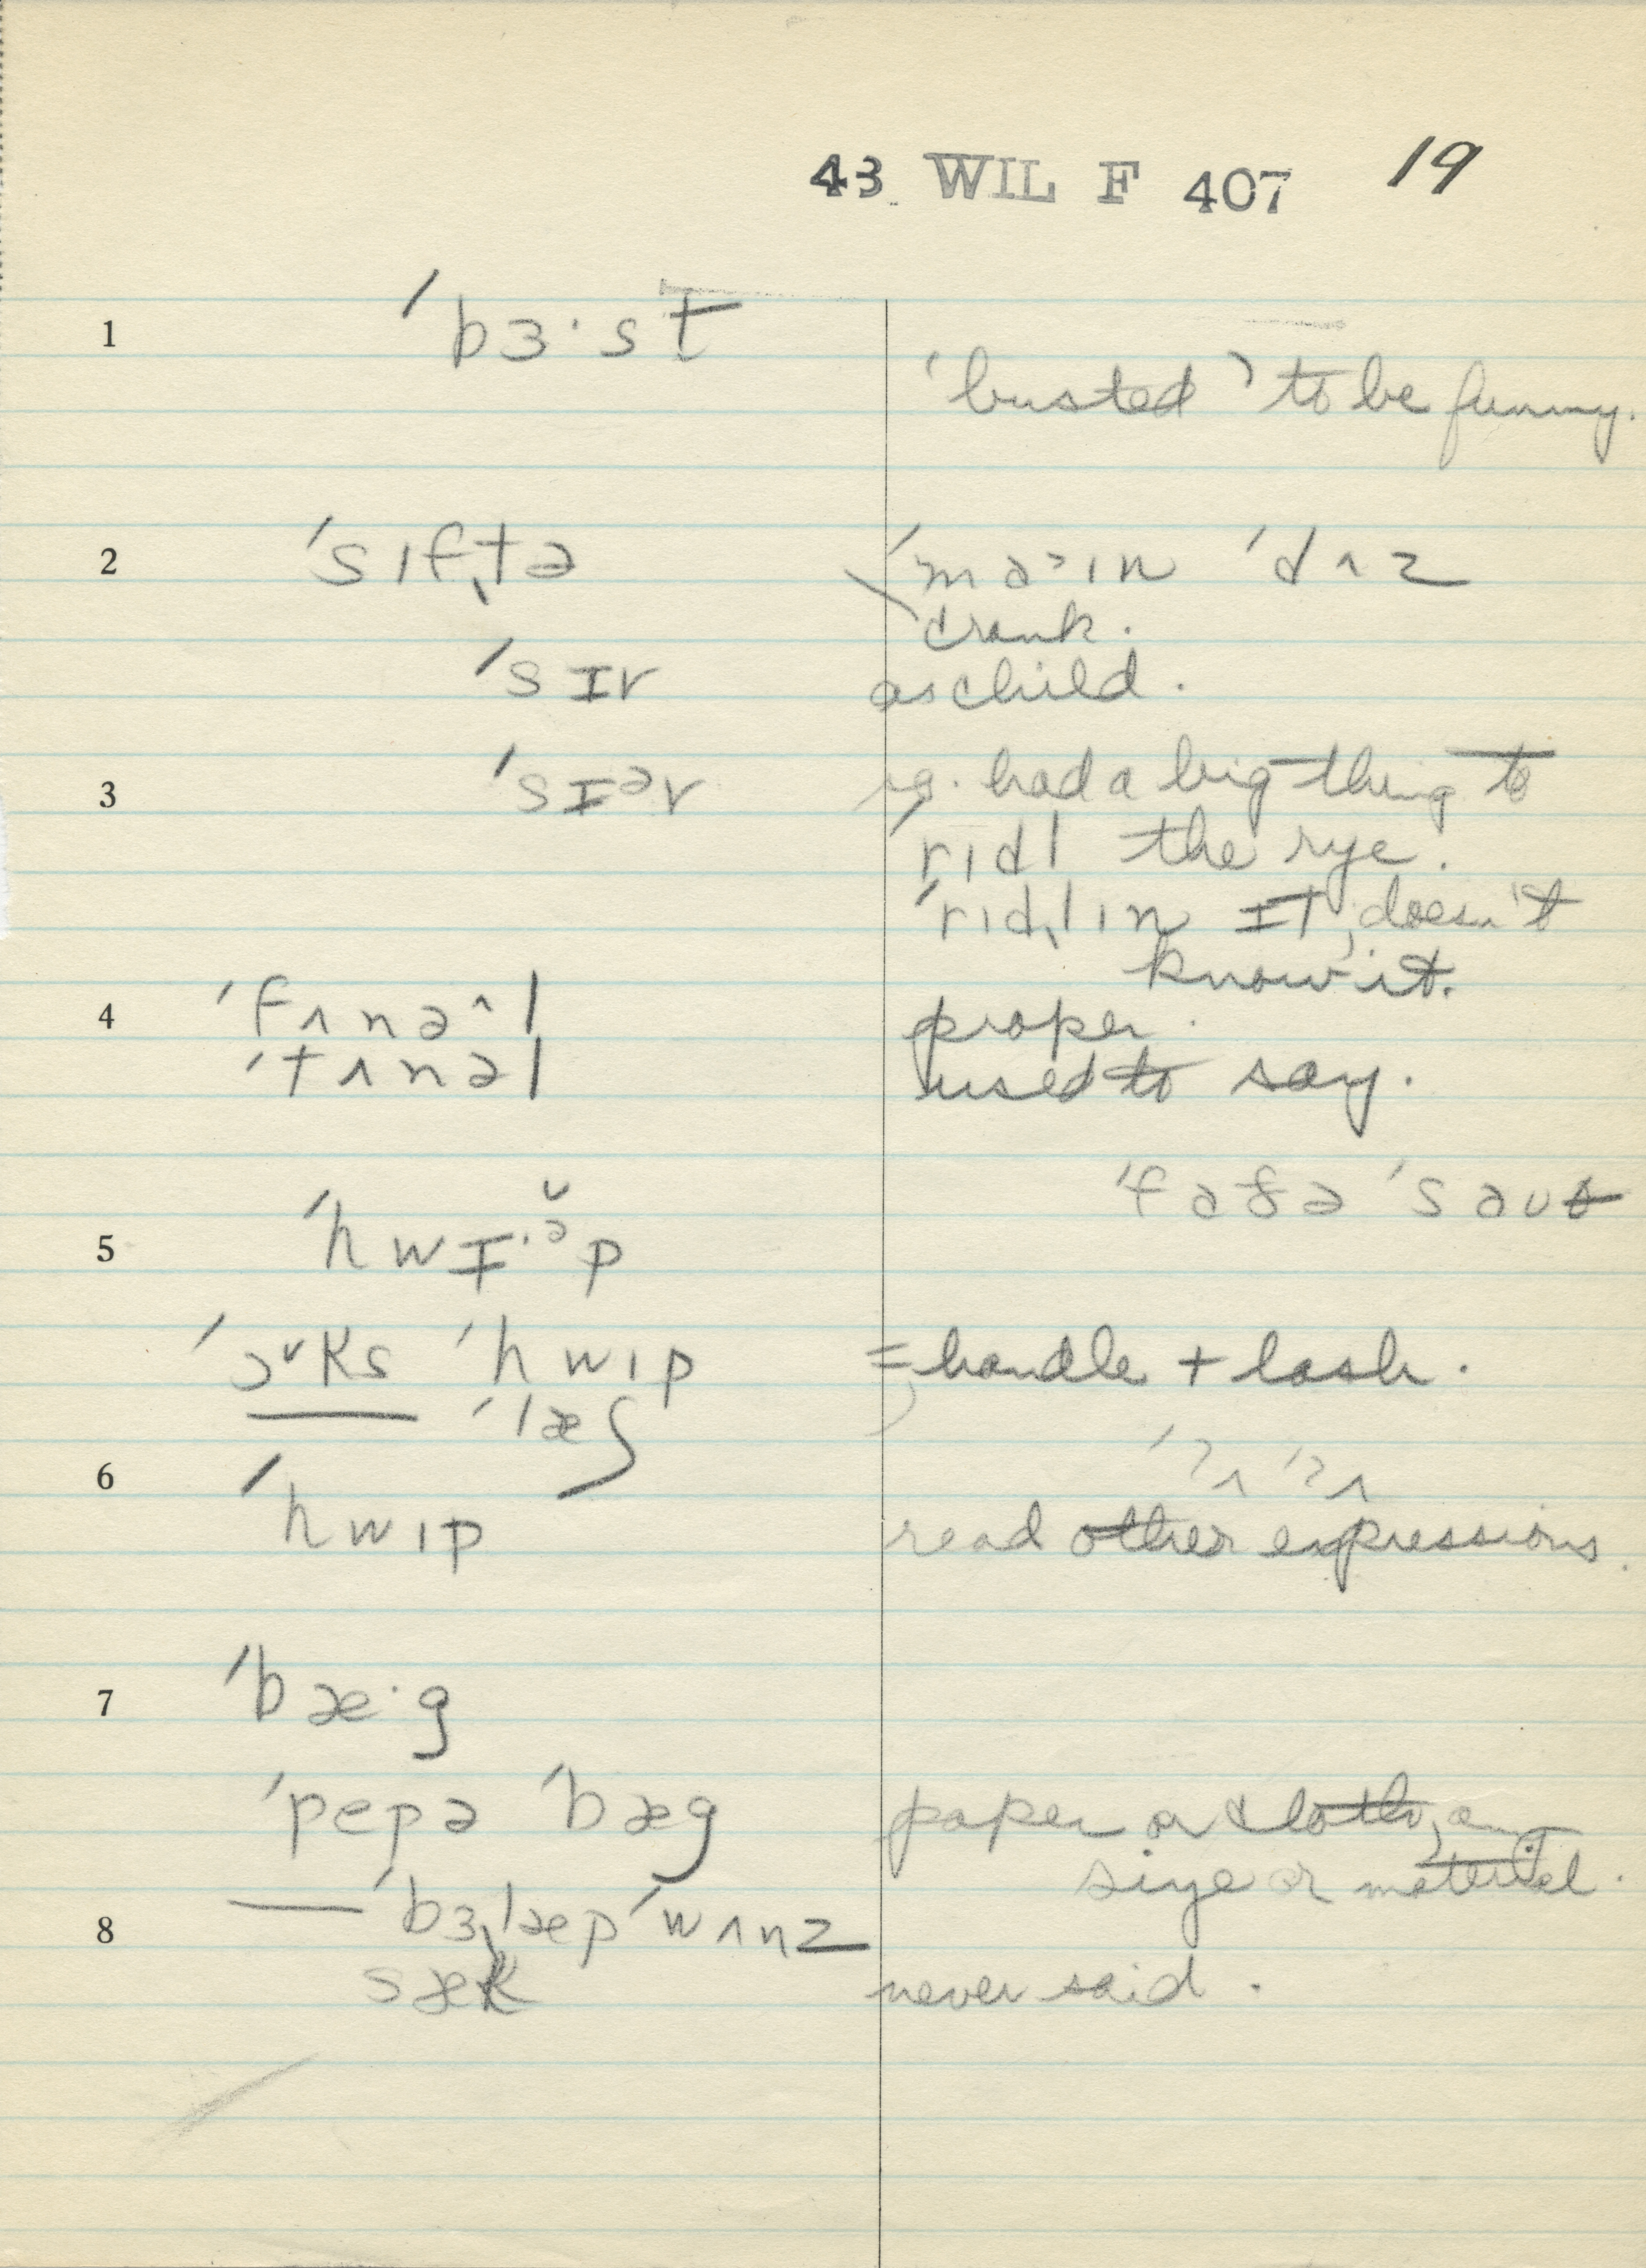 43 WIL F 407 19
1 ˈbɜ·st
'busted' to be funny.
2 ˈsɪfˌtə ˈməˑɪn ˈdʌz
crank.
ˈsɪv as child.
3 ˈsɪᵊv had a big thing to
ˈrɪdl the rye.
ˈrɪdˌlɪn ɪt, doesn't
know it.
4 ˈfʌnə^l proper.
ˈtʌnəl used to say.
ˈfaðə ˈsaus
5 ˈhwɪ·ᵊ̆p
ˈɔˇks ˈhwɪp = handle + lash.
— ˈlæʃ
ˈʔʌ ˈʔʌ
6 ˈhwɪp read other expressions.
7 ˈbæ·g
ˈpepə ˈbæg paper or cloth, any
size or material.
8 — ˈbɜˌlæp ˈwʌnz
sæk never said.